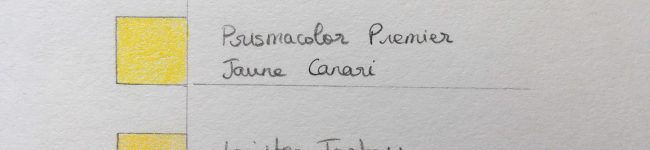 Prismacolor Premier
Jaune Canari